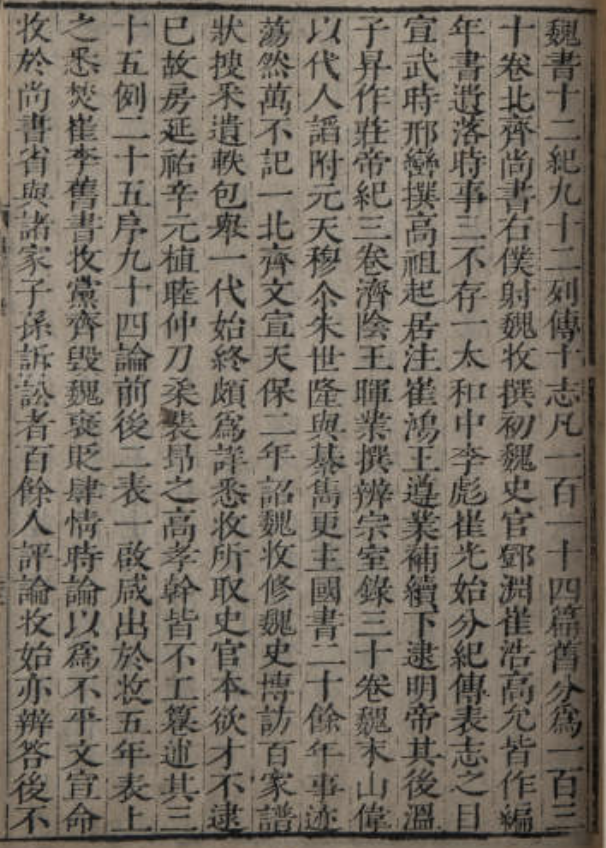 魏書十二紀九十二列傳十志凡一百一十四篇舊分爲一百三
十卷北齊尚書右僕射魏收撰初魏史官鄧淵崔浩高允皆作編
年書遺落時事三不存一太和中李彪崔光始分紀傳表志之目
宣武時邢巒撰高祖起居注崔鴻王遵業補續下逮明帝其後溫
子昇作莊帝紀三卷濟陰王暉業撰辨宗室錄三十卷魏末山偉
以代人諂附元天穆尒朱世隆與綦雋更主國書二十餘年事迹
蕩然萬不記一北齊文宣天保二年詔魏收修魏史博訪百家譜
狀搜采遺軼包舉一代始終頗爲詳悉收所取史官本欲才不逮
己故房延祐辛元植睦仲刀柔裴昂之高孝幹皆不工纂述其三
十五例二十五序九十四論前後二表一啟咸出於收五年表上
之悉焚崔李舊書收黨齊毀魏褒貶肆情時論以爲不平文宣命
收於尚書省與諸家子孫訴訟者百餘人評論收始亦辨答後不